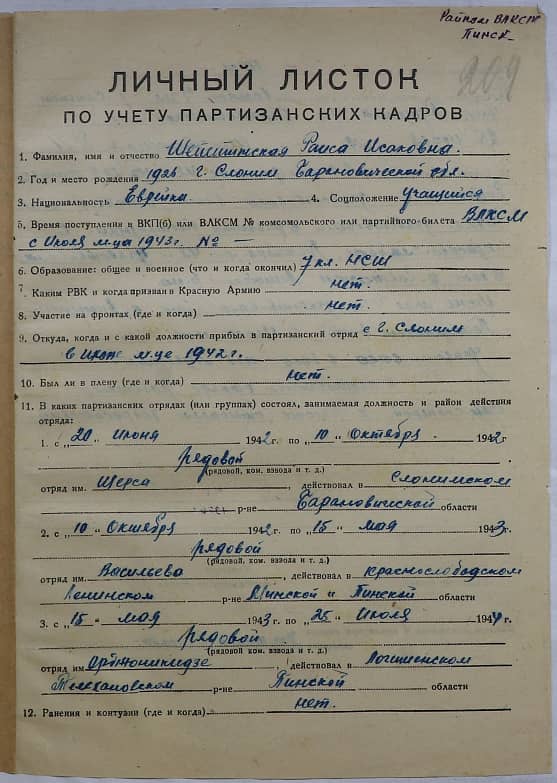 Райком ВЛКСМ
Пинск
209
ЛИЧНЫЙ ЛИСТОК
ПО УЧЕТУ ПАРТИЗАНСКИХ КАДРОВ
1. Фамилия, имя и отчество Раиса Исаковна.
2. Год и место рождения 1926 г. Слоним Барановической обл.
3. Национальность Еврейка 4. Соцположение учащийся
5. Время поступления в ВКП(б) или ВЛКСМ № комсомольского или партийного билета ВЛКСМ
с Июля м-ца 1943 г. № —
6. Образование: общее и военное (что и когда окончил) 7 кл. НСШ
7. Каким РВК и когда призван в Красную Армию нет.
8. Участие на фронтах (где и когда) нет.
9. Откуда, когда и с какой должности прибыл в партизанский отряд с г. Слоним
в м-це 1942 г.
10. Был ли в плену (где и когда) нет.
11. В каких партизанских отрядах (или группах) состоял, занимаемая должность и район действия
отряда:
1. с „20" Июня 1942 г. по „10" Октября. 1942 г
рядовой
(рядовой, ком. взвода и т. д.)
отряд им. Щорса, действовал в Слонимском
р-не Барановической области
2. с „10" Октября 1942 г. по „15" мая 1943 г.
рядовой
(рядовой, ком. взвода и т. д.)
отряд им. Васильева, действовал в Краснослободском
Ленинском р-не Минской и Пинской области
3. с „15" мая 1943 г. по „25" Июля 1944 г.
рядовой
(рядовой, ком. взвода и т. д.)
отряд им Орджоникидзе, действовал в Логишенском
Телехановском р-не Пинской области
12. Ранения и контузии (где и когда) нет.